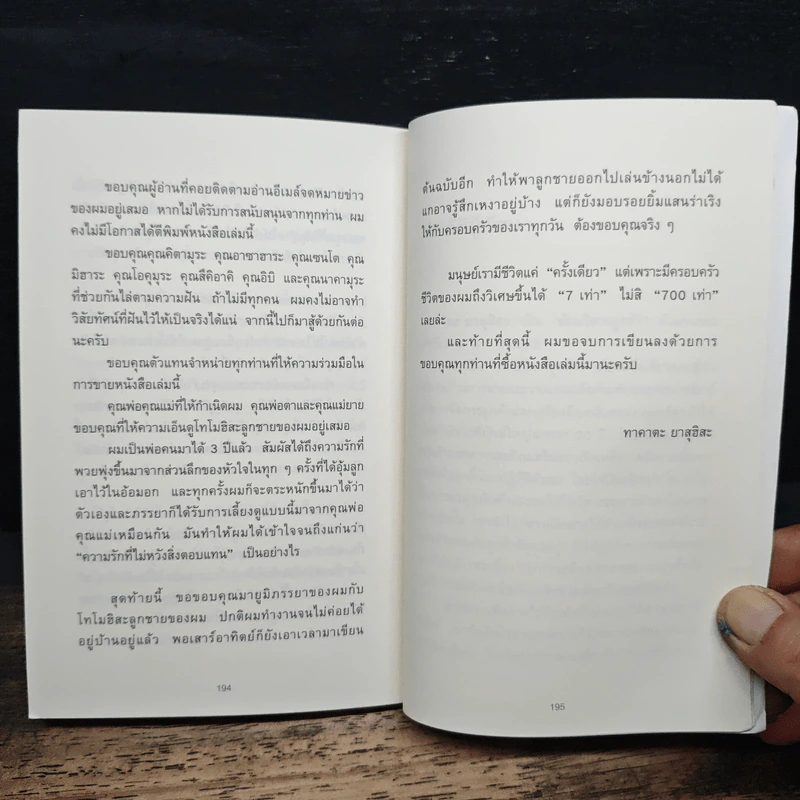 ขอบคุณผู้อ่านที่คอยติดตามอ่านอีเมล์จดหมายข่าว
ของผมอยู่เสมอ หากไม่ได้รับการสนับสนุนจากทุกท่าน ผม
คงไม่มีโอกาสได้ตีพิมพ์หนังสือเล่มนี้
ขอบคุณคุณคิตามุระ คุณอาซาฮาระ คุณเซนโต คุณ
มิฮาระ คุณโอคุมุระ คุณสึคิอาคิ คุณอิบิ และคุณนาคามุระ
ที่ช่วยกันไล่ตามความฝัน ถ้าไม่มีทุกคน ผมคงไม่อาจทำ
วิสัยทัศน์ที่ฝันไว้ให้เป็นจริงได้แน่ จากนี้ไปก็มาสู้ด้วยกันต่อ
นะครับ
ขอบคุณตัวแทนจำหน่ายทุกท่านที่ให้ความร่วมมือใน
การขายหนังสือเล่มนี้
คุณพ่อคุณแม่ที่ให้กำเนิดผม คุณพ่อตาและคุณแม่ยาย
ขอบคุณที่ให้ความเอ็นดูโทโมฮิสะลูกชายของผมอยู่เสมอ
ผมเป็นพ่อคนมาได้ 3 ปีแล้ว สัมผัสได้ถึงความรักที่
พวยพุ่งขึ้นมาจากส่วนลึกของหัวใจในทุก ๆ ครั้งที่ได้อุ้มลูก
เอาไว้ในอ้อมอก และทุกครั้งผมก็จะตระหนักขึ้นมาได้ว่า
ตัวเองและภรรยาก็ได้รับการเลี้ยงดูแบบนี้มาจากคุณพ่อ
คุณแม่เหมือนกัน มันทำให้ผมได้เข้าใจจนถึงแก่นว่า
“ความรักที่ไม่หวังสิ่งตอบแทน” เป็นอย่างไร
สุดท้ายนี้ ขอขอบคุณมายูมิภรรยาของผมกับ
โทโมฮิสะลูกชายของผม ปกติผมทำงานจนไม่ค่อยได้
อยู่บ้านอยู่แล้ว พอเสาร์อาทิตย์ก็ยังเอาเวลามาเขียน
194
ต้นฉบับอีก ทำให้พาลูกชายออกไปเล่นข้างนอกไม่ได้
แกอาจรู้สึกเหงาอยู่บ้าง แต่ก็ยังมอบรอยยิ้มแสนร่าเริง
ให้กับครอบครัวของเราทุกวัน ต้องขอบคุณจริง ๆ
มนุษย์เรามีชีวิตแค่ “ครั้งเดียว” แต่เพราะมีครอบครัว
ชีวิตของผมถึงวิเศษขึ้นได้ “7 เท่า” ไม่สิ “700 เท่า”
เลยล่ะ
และท้ายที่สุดนี้ ผมขอจบการเขียนลงด้วยการ
ขอบคุณทุกท่านที่ซื้อหนังสือเล่มนี้มานะครับ
ทาคาตะ ยาสุฮิสะ
195